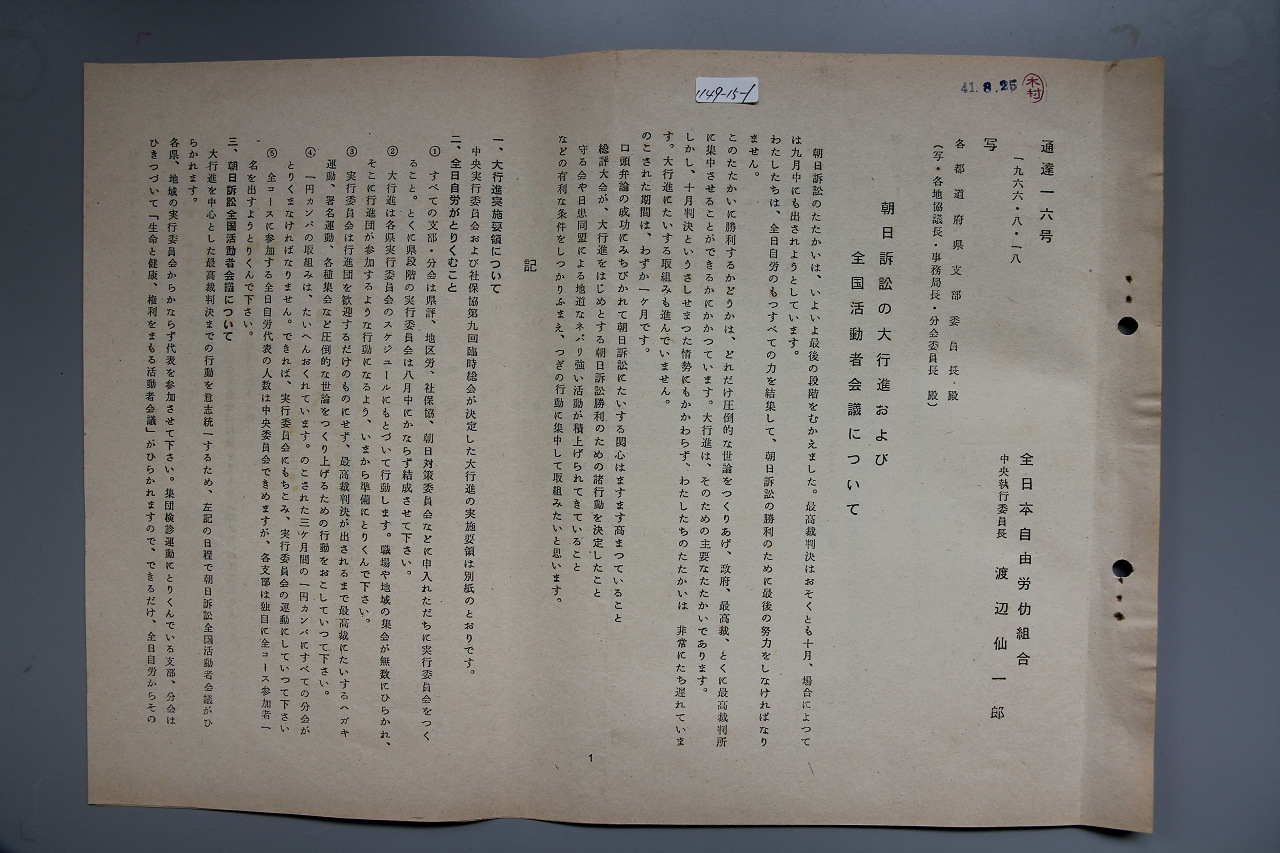 1149-15-1
41.8.25
木村
通達一六号
一九六六・八・一八
写
全日本自由労仂組合
中央執行委員長 渡辺仙一郎
各都道府県支部委員長・殿
(写・各地協議長・事務局長・分会委員長 殿)
朝日訴訟の大行進および
全国活動者会議について
朝日訴訟のたたかいは、いよいよ最後の段階をむかえました。最高裁判決はおそくとも十月、場合によつて
は九月中にも出されようとしています。
わたしたちは、全日自労のもつすべての力を結集して、朝日訴訟の勝利のために最後の努力をしなければなり
ません。
このたたかいに勝利するかどうかは、どれだけ圧倒的な世論をつくりあげ、政府、最高裁、とくに最高裁判所
に集中させることができるかにかかつています。大行進は、そのための主要なたたかいであります。
しかし、十月判決というさしせまつた情勢にもかかわらず、わたしたちのたたかいは 非常にたち遅れていま
す。大行進にたいする取組みも進んでいません。
のこされた期間は、わずか一ケ月です。
口頭弁論の成功にみちびかれて朝日訴訟にたいする関心はますます高まつていること
総評大会が、大行進をはじめとする朝日訴訟勝利のための諸行動を決定したこと
守る会や日患同盟による地道なネバリ強い活動が積上げられてきていること
などの有利な条件をしつかりふまえ、つぎの行動に集中して取組みたいと思います。
記
一、大行進実施要領について
中央実行委員会および社保協第九回臨時総会が決定した大行進の実施要領は別紙のとおりです。
二、全日自労がとりくむこと
① すべての支部・分会は県評、地区労、社保協、朝日対策委員会などに申入れただちに実行委員会をつく
ること。とくに県段階の実行委員会は八月中にかならず結成させて下さい。
② 大行進は各県実行委員会のスケジュールにもとづいて行動します。職場や地域の集会が無数にひらかれ、
そこに行進団が参加するような行動になるよう、いまから準備にとりくんで下さい。
③ 実行委員会は行進団を歓迎するだけのものにせず、最高裁判決が出されるまで最高裁にたいするハガキ
運動、署名運動、各種集会など圧倒的な世論をつくり上げるための行動をおこしていつて下さい。
④ 一円カンパの取組みは、たいへんおくれています。のこされた三ケ月間の一円カンパにすべての分会が
とりくまなければなりません。できれば、実行委員会にもちこみ、実行委員会の運動にしていつて下さい
⑤ 全コースに参加する全日自労代表の人数は中央委員会できめますが、各支部は独自に全コース参加者一
名を出すようとりくんで下さい。
三、朝日訴訟全国活動者会議について
大行進を中心とした最高裁判決までの行動を意志統一するため、左記の日程で朝日訴訟全国活動者会議がひ
らかれます。
各県、地域の実行委員会からかならず代表を参加させて下さい。集団検診運動にとりくんでいる支部、分会は
ひきつづいて「生命と健康、権利をまもる活動者会議」がひらかれますので、できるだけ、全日自労からその
1